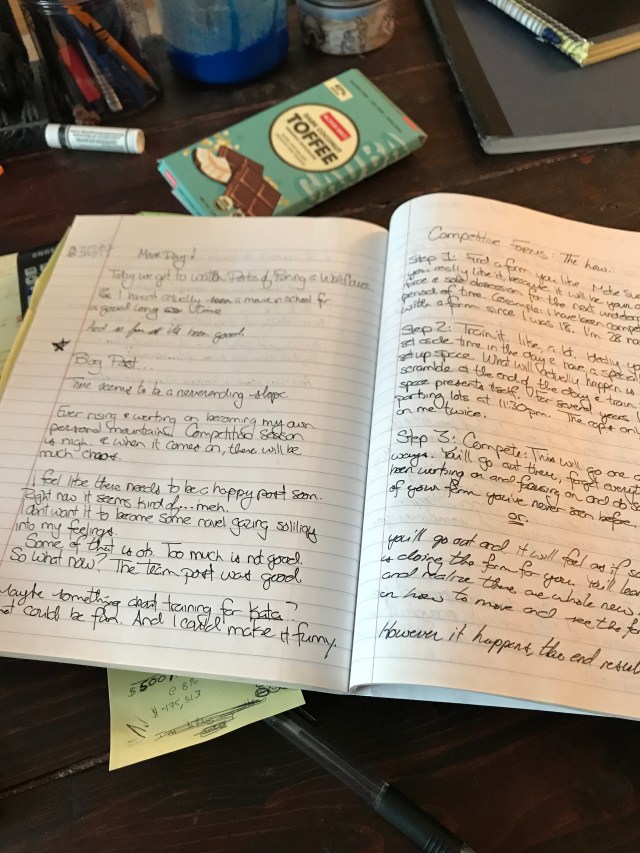 TOFFEE
Movie Day!
Today we get to watch Perks of Being a Wallflower
I haven't actually seen a movie in school for
a good long time
And so far it's been good.
Blog Post
Time seems to be a neverending slope.
Ever rising & working on becoming my own
personal mountain. Competition season
is nigh. & when it comes on, there will be
much chaos.
I feel like there needs to be a happy post soon.
Right now it seems kind of...meh.
I don't want it to become some navel gazing soliliqy
into my feelings.
Some of that is ok. Too much is not good.
So what now? The team post was good.
Maybe something about training for Kata?
could be fun. And I could make it funny.
$500
@ 8%
Competitive Forms: The how.
Step 1: Find a form you like. Make sure
you really like it because it will be your
a solid obsession for the next
period of time. (example: I have been
with a form since I was 18. I'm 28 now
Step 2: Train it, like, a lot. Ideally you
set aside time in the day & have a
set up space. What will actually happen is
scramble at the end of the day & train
space presents itself. For several years
parking lots at 11:30pm. The cops
on me twice.
Step 3: Compete: This will go one of
ways. You'll go out there, forget
been working on and focusing on and do
of your form you've never seen before
or
you'll go out and it will feel as if
is doing the form for you. You'll
and realize there are whole new
on how to move and see the
However it happens, the end result